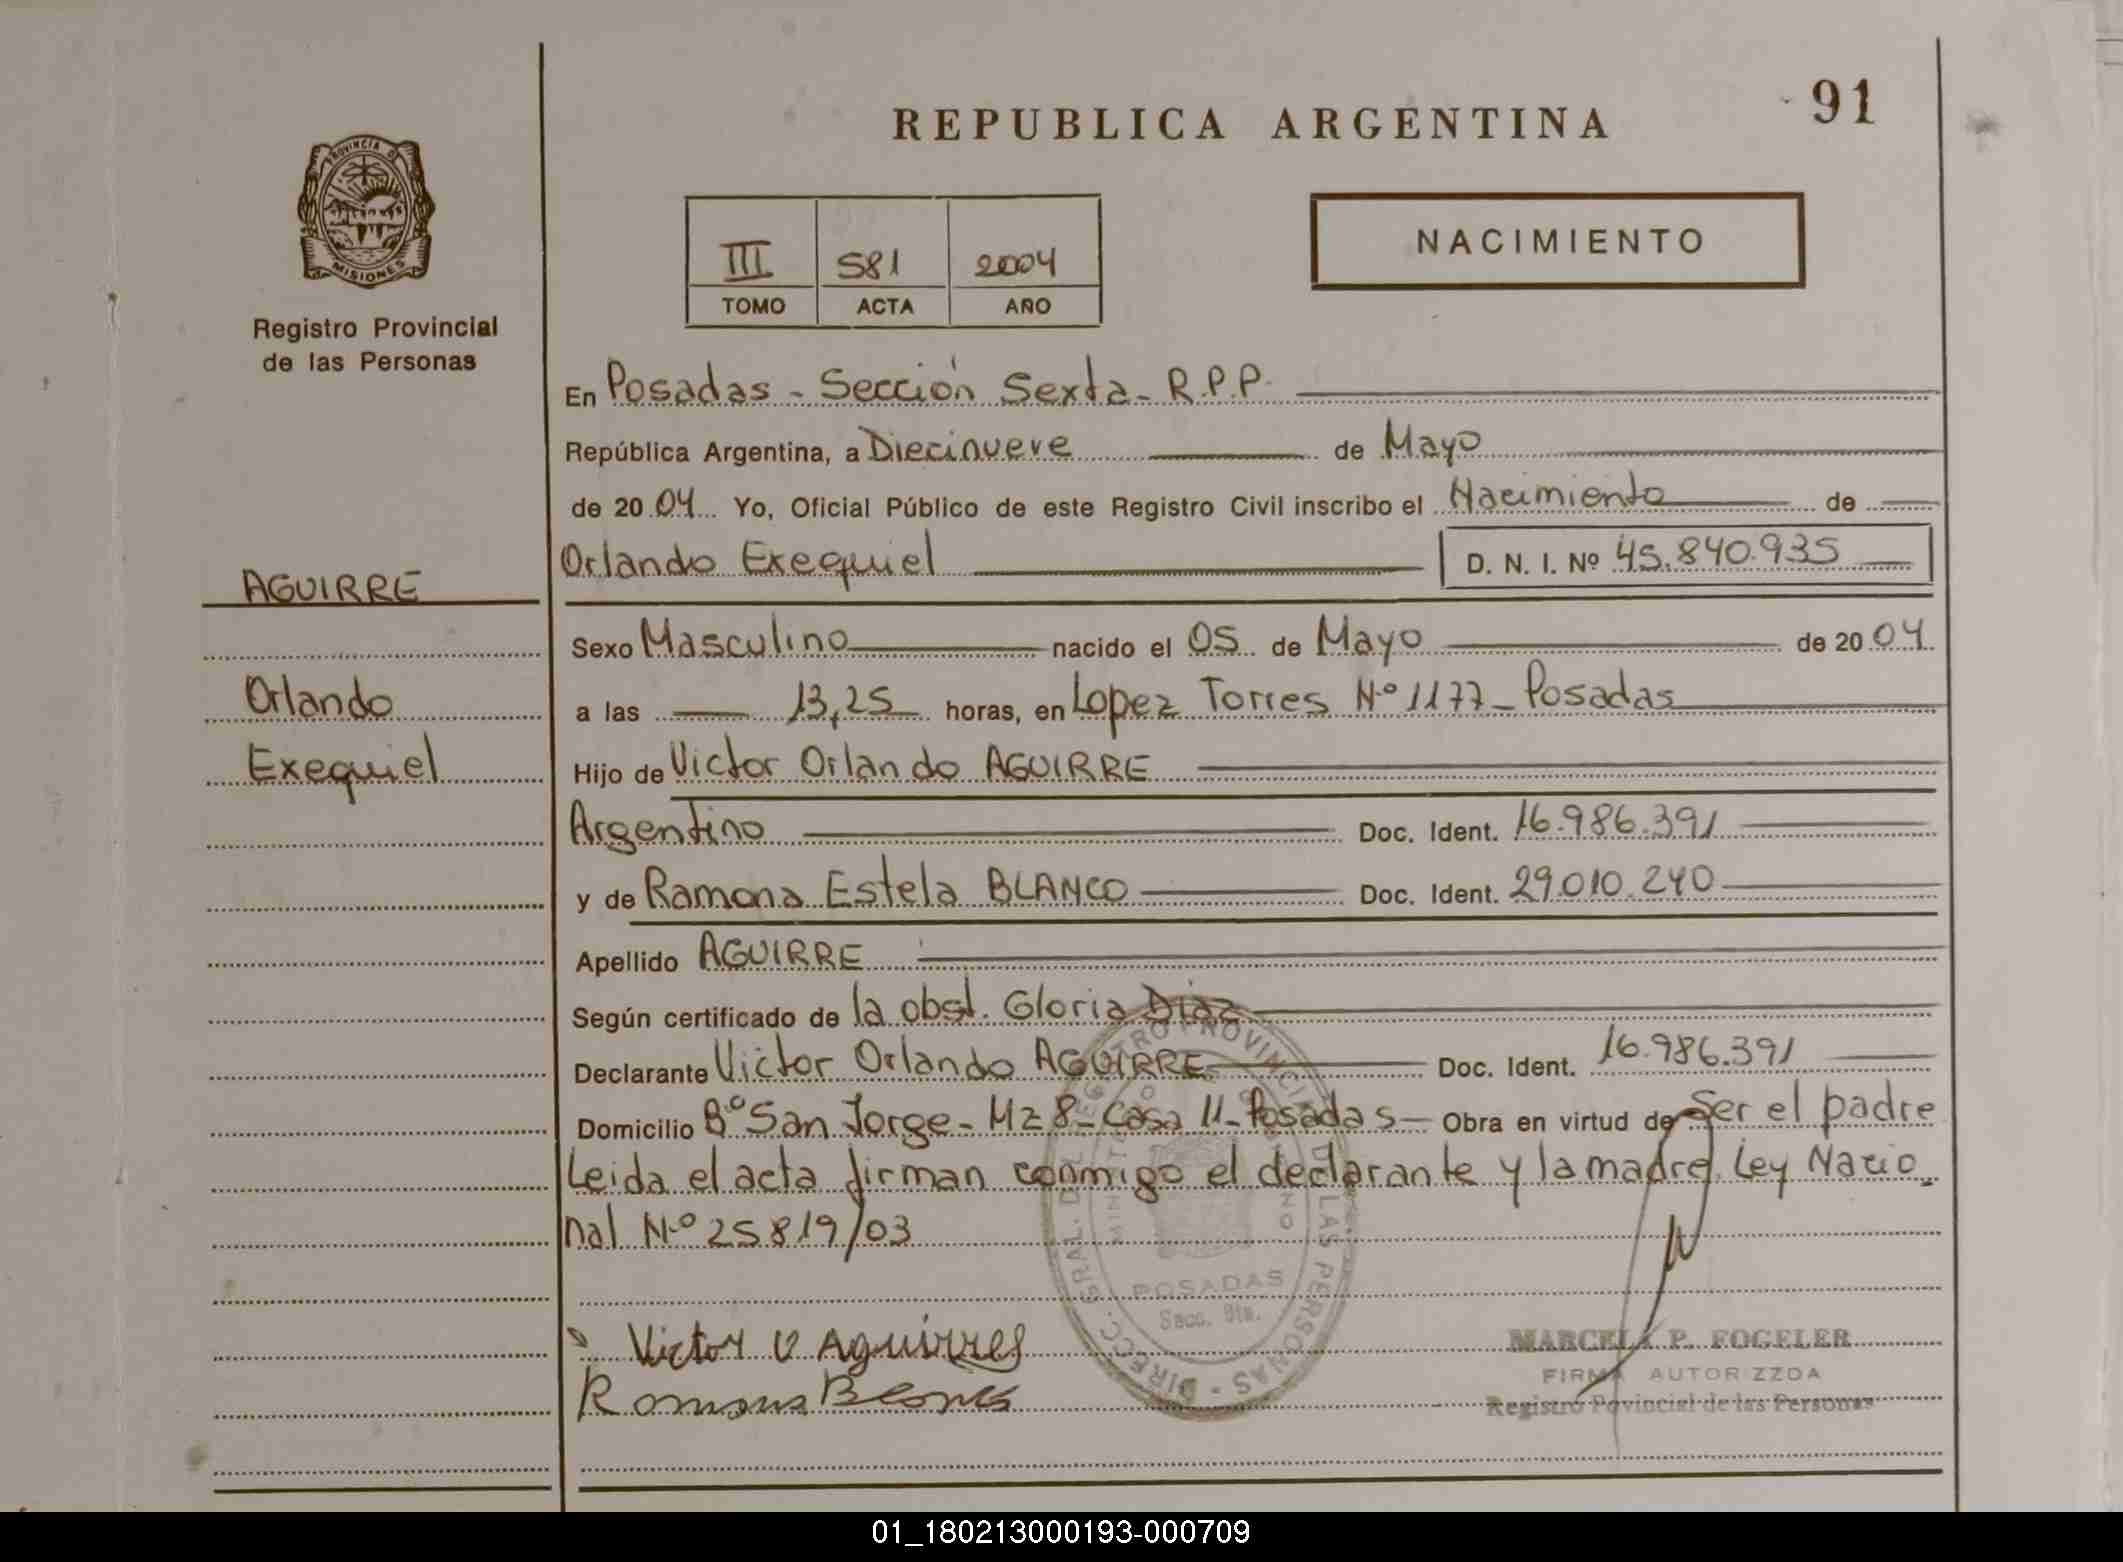 91
REPUBLICA ARGENTINA
PROVINCIA DE
MISIONES
Registro Provincial
de las Personas
III 581 2004
TOMO ACTA AÑO
NACIMIENTO
En Posadas - Sección Sexta - R.P.P.
República Argentina, a Diecinueve de Mayo
de 2004 Yo, Oficial Público de este Registro Civil inscribo el Nacimiento de
Orlando Exequiel D. N. I. Nº 45.840.935
AGUIRRE
Orlando
Exequiel
Sexo Masculino nacido el 05 de Mayo de 2004
a las 13,25 horas, en Lopez Torres Nº 1177 - Posadas
Hijo de Victor Orlando AGUIRRE
Argentino Doc. Ident. 16.986.391
y de Ramona Estela BLANCO Doc. Ident. 29.010.240
Apellido AGUIRRE
Según certificado de la obst. Gloria Diaz
Declarante Victor Orlando AGUIRRE Doc. Ident. 16.986.391
Domicilio Bº San Jorge - Mz 8 - Casa 11 - Posadas - Obra en virtud de Ser el padre
Leida el acta firman conmigo el declarante y la madre. Ley Nacio
nal Nº 25819/03
DIRECC. GRAL. DEL REGISTRO PROVINCIAL DE LAS PERSONAS
POSADAS
Secc. 6ta.
Victor O Aguirres
Ramona Blanco
MARCELA P. FOGELER
FIRMA AUTORIZZDA
Registro Povincial de las Personas
01_180213000193-000709